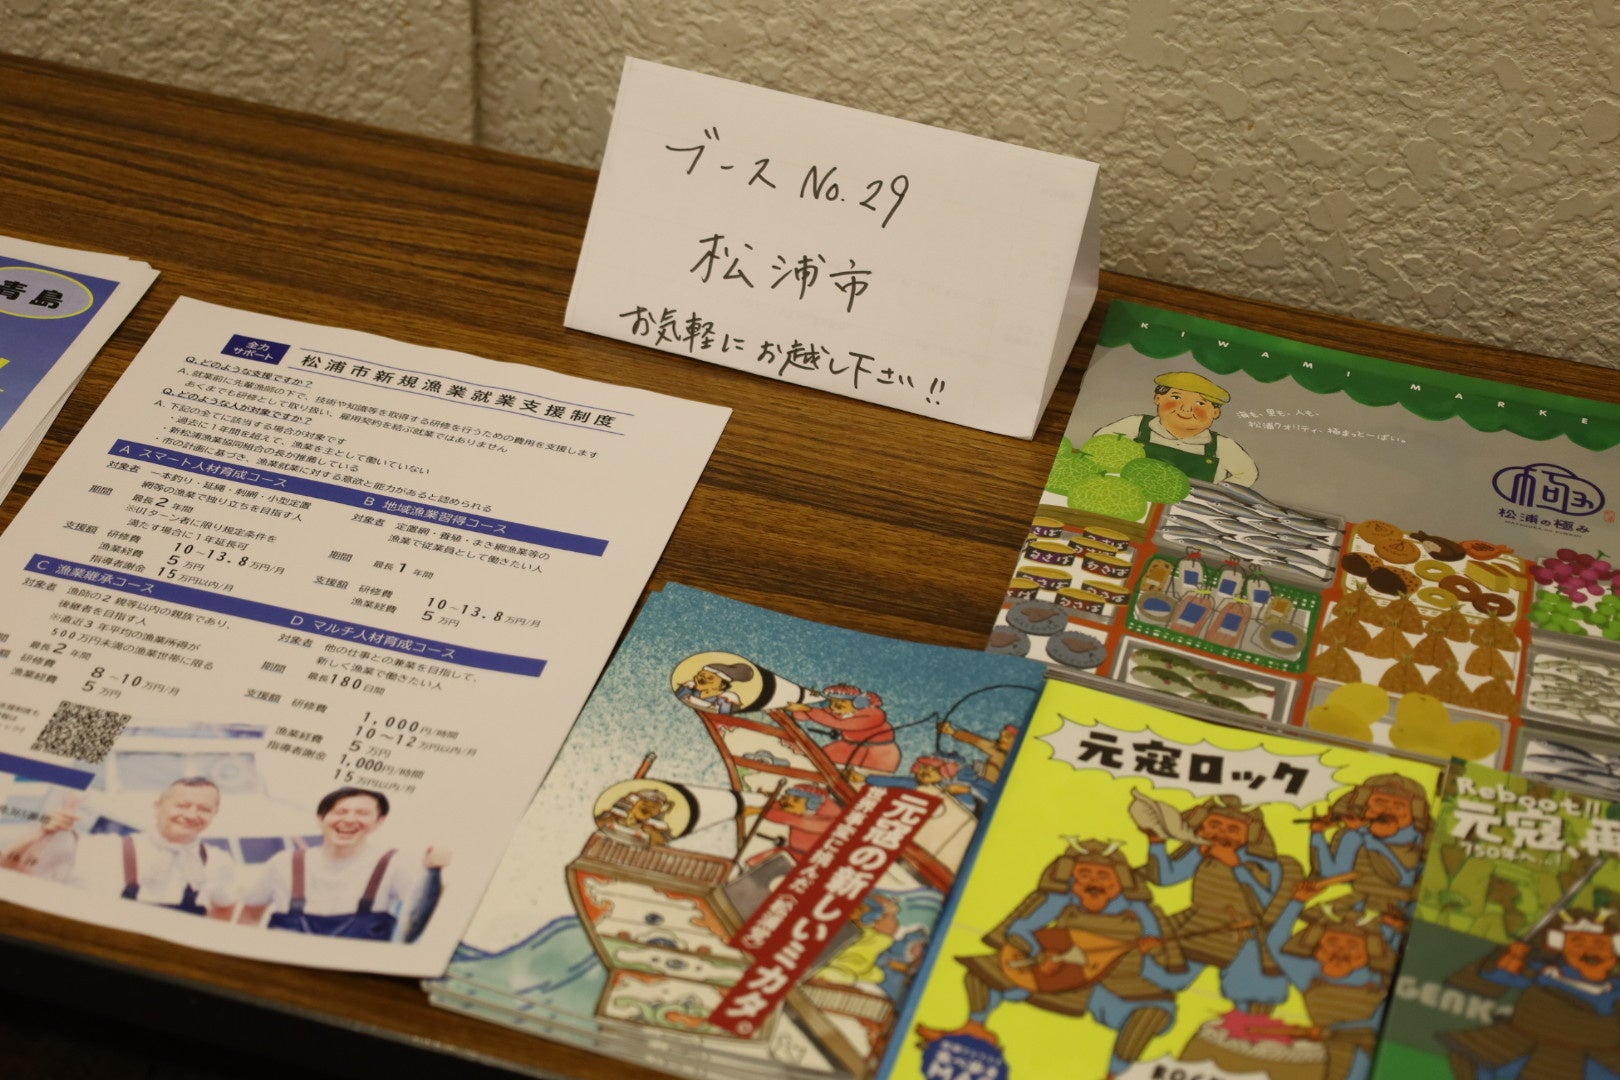 ブース No.29
松浦市
お気軽にお越し下さい!!
青島
全力
サポート
松浦市新規漁業就業支援制度
Q.どのような支援ですか?
A.就業前に先輩漁師の下で、技術や知識等を取得する研修を行うための費用を支援します
あくまでも研修として取り扱い、雇用契約を結ぶ就業ではありません
Q.どのような人が対象ですか?
A.下記の全てに該当する場合が対象です
・過去に1年間を超えて、漁業を主として働いていない
・新松浦漁業協同組合の長が推薦している
・市の計画に基づき、漁業就業に対する意欲と能力があると認められる
A スマート人材育成コース
対象者 一本釣り・延縄・刺網・小型定置
網等の漁業で独り立ちを目指す人
期間 最長2年間
※UIターン者に限り規定条件を
満たす場合に1年延長可
支援額 研修費 10~13.8万円/月
漁業経費 5万円
指導者謝金 15万円以内/月
B 地域漁業習得コース
対象者 定置網・養殖・まき網漁業等の
漁業で従業員として働きたい人
期間 最長1年間
支援額 研修費 10~13.8万円/月
漁業経費 5万円
C 漁業継承コース
対象者 漁師の2親等以内の親族であり、
後継者を目指す人
※直近3年平均の漁業所得が
500万円未満の漁業世帯に限る
間 最長2年間
研修費 8~10万円/月
漁業経費 5万円
D マルチ人材育成コース
対象者 他の仕事との兼業を目指して、
新しく漁業で働きたい人
期間 最長180日間
支援額 研修費 1,000円/時間
10~12万円以内/月
漁業経費 5万円
指導者謝金 1,000円/時間
15万円以内/月
KIWAMI MARKE
海も、里も、人も、
松浦クオリティ、極まっとーばい。
極み
松浦の極み
元寇の新しいミカタ。
元寇ロック
Reboot!!
元寇、再
750年へ
GENK